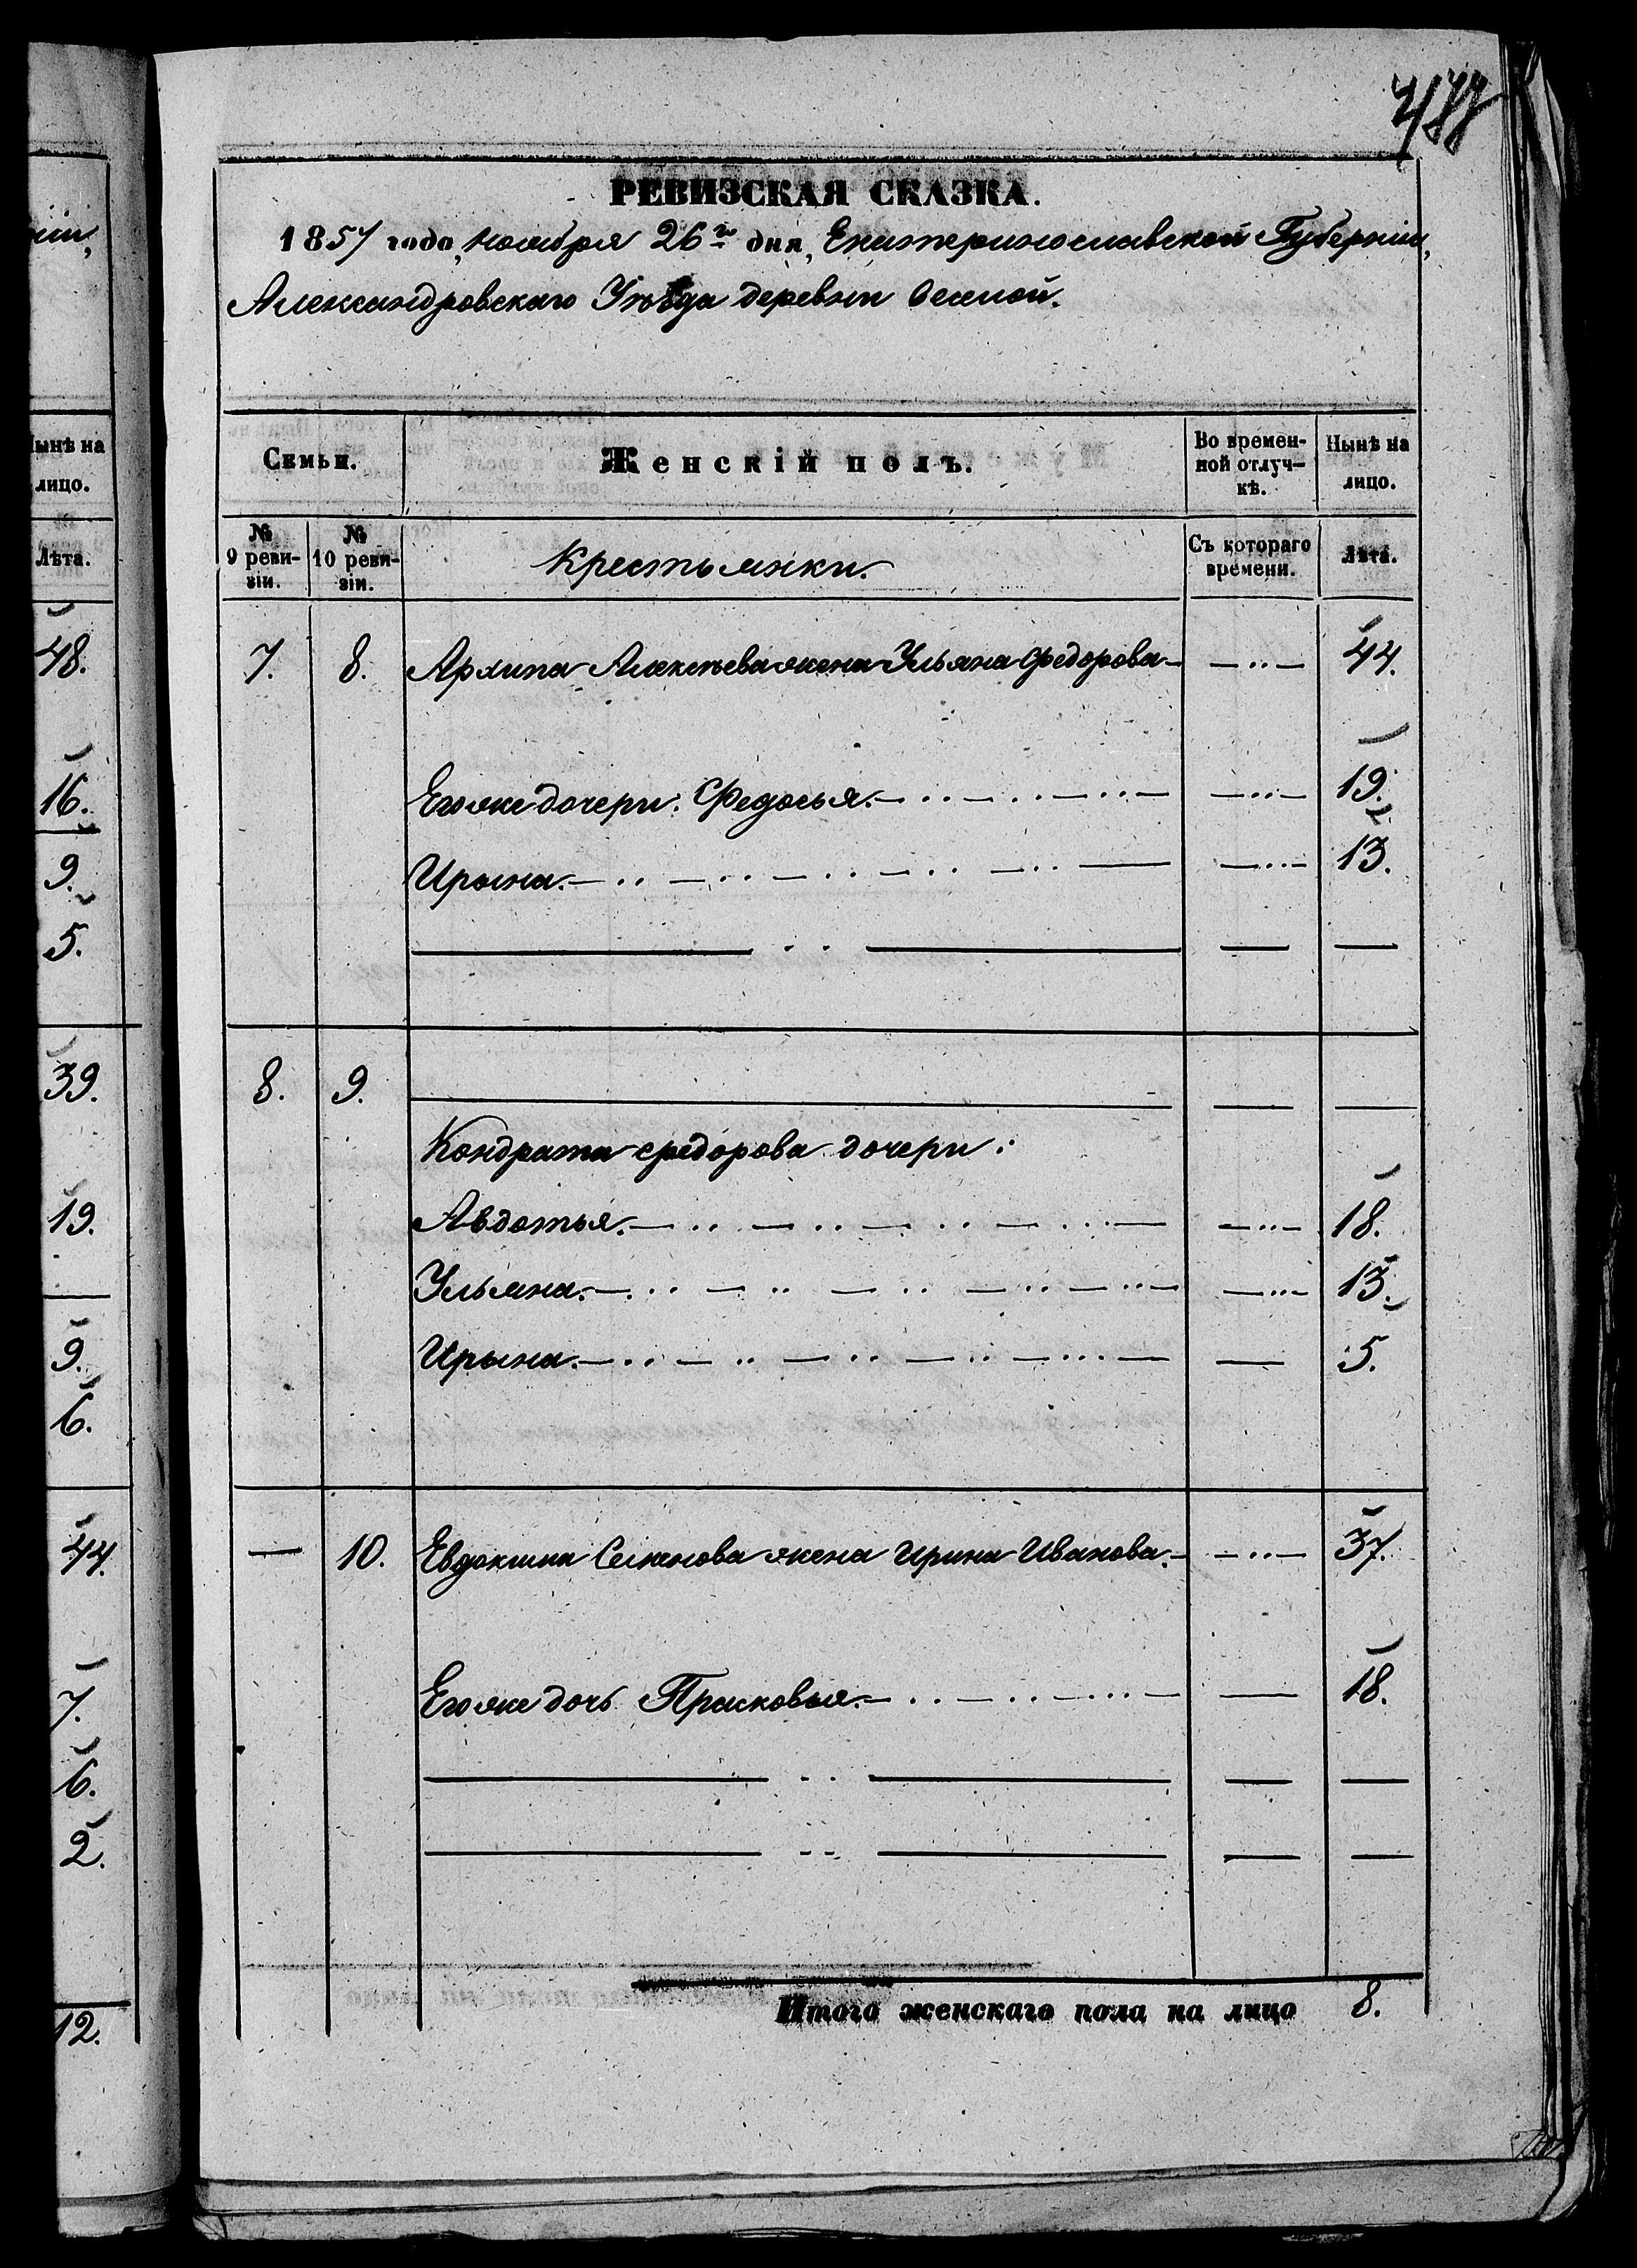 488
РЕВИЗСКАЯ СКАЗКА.
1857 года, ноября 26го дня, Екатеринославской Губерніи,
Александровскаго Уѣзда деревни
Семьи. Женскій полъ. Во времен-
ной отлуч-
кѣ. Нынѣ на
лицо.
№
9 реви-
зіи. №
10 реви-
зіи. Крестьянки. Съ котораго
времени. Лѣта.
7. 8. Архипа Алексѣева жена Ульяна Федорова 44.
Его же дочери: Федосья. 19.
Ирына. 13.
8. 9.
Кондрата Федорова дочери:
Авдотья. 18.
Ульяна. 13.
Ирына. 5.
10. Евдокима Семенова жена Ирина Иванова. 37.
Его же дочь Прасковья. 18.
Итого женскаго пола на лицо 8.
ніи,
Нынѣ на
лицо.
Лѣта.
48.
16.
9.
5.
39.
19.
9.
6.
44.
7.
6.
2.
12.